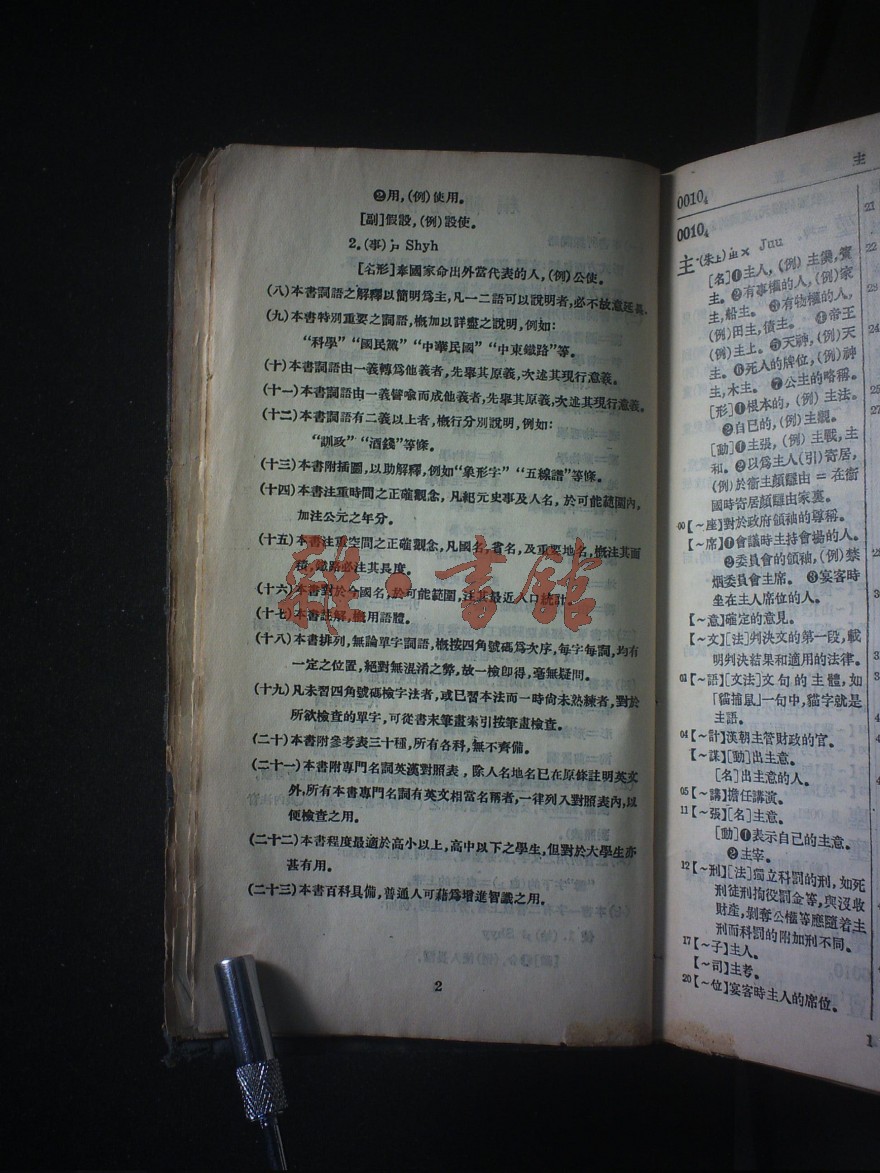 ❷用，(例)使用。
[副]假設，(例)設使。
2.(事)ㄕ Shyh
[名形]奉國家命出外當代表的人，(例)公使。
(八)本書詞語之解釋以簡明爲主，凡一二語可以說明者，必不故意延長。
(九)本書特別重要之詞語，槪加以詳盡之說明，例如：
“科學”“國民黨”“中華民國”“中東鐵路”等。
(十)本書詞語由一義轉爲他義者，先舉其原義，次述其現行意義。
(十一)本書詞語由一義譬喻而成他義者，先舉其原義，次述其現行意義。
(十二)本書詞語有二義以上者，槪行分別說明，例如：
“訓政”“酒錢”等條。
(十三)本書附插圖，以助解釋，例如“象形字”“五線譜”等條。
(十四)本書注重時間之正確觀念，凡紀元史事及人名，於可能範圍內，
加注公元之年分。
(十五)本書注重空間之正確觀念，凡國名，省名，及重要地名，槪注其面
積，鐵路必注其長度。
(十六)本書對於今國名，於可能範圍，注其最近人口統計。
(十七)本書註解，槪用語體。
(十八)本書排列，無論單字詞語，槪按四角號碼爲次序，每字每詞，均有
一定之位置，絕對無混淆之弊，故一檢卽得，毫無疑問。
(十九)凡未習四角號碼檢字法者，或已習本法而一時尙未熟練者，對於
所欲檢查的單字，可從書末筆畫索引按筆畫檢查。
(二十)本書附參考表三十種，所有各科，無不齊備。
(二十一)本書附專門名詞英漢對照表，除人名地名已在原條註明英文
外，所有本書專門名詞有英文相當名稱者，一律列入對照表內，以
便檢查之用。
(二十二)本書程度最適於高小以上，高中以下之學生，但對於大學生亦
甚有用。
(二十三)本書百科具備，普通人可藉爲增進智識之用。
2
雜·書館
主
0010₄
0010₄
主·(朱上)ㄓㄨ Juu
[名]❶主人，(例)主僕，賓
主。❷有事權的人，(例)家
主，船主。❸有物權的人，
(例)田主，債主。❹帝王
(例)主上。❺天神，(例)天
主。❻死人的牌位，(例)神
主，木主。❼公主的略稱。
[形]❶根本的，(例)主法。
❷自己的，(例)主觀。
[動]❶主張，(例)主戰，主
和。❷以爲主人(引)寄居，
(例)於衞主顏讎由＝在衞
國時寄居顏讎由家裏。
00【～座】對於政府領袖的尊稱。
【～席】❶會議時主持會場的人。
❷委員會的領袖，(例)禁
烟委員會主席。❸宴客時
坐在主人席位的人。
【～意】確定的意見。
【～文】[法]判決文的第一段，載
明判決結果和適用的法律。
01【～語】[文法]文句的主體，如
「貓捕鼠」一句中，貓字就是
主語。
04【～計】漢朝主管財政的官。
【～謀】[動]出主意。
[名]出主意的人。
05【～講】擔任講演。
11【～張】[名]主意。
[動]❶表示自己的主意。
❷主宰。
12【～刑】[法]獨立科罰的刑，如死
刑徒刑拘役罰金等，與沒收
財產，剝奪公權等應隨着主
刑而科罰的附加刑不同。
17【～子】主人。
【～司】主考。
20【～位】宴客時主人的席位。
1